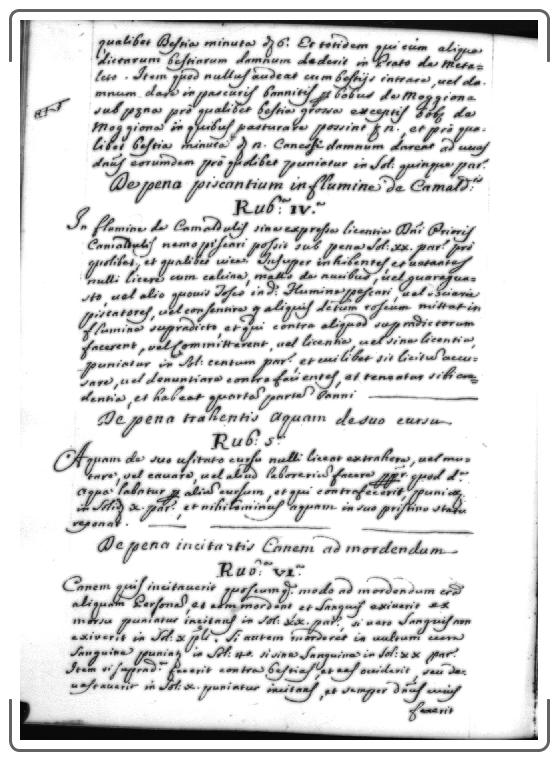 qualibet Bestia minuta d 6. Et totidem qui cum aliqua
dictarum bestiarum damnum dederit in Prato de Meta-
leto. Item quod nullus audeat cum bestijs intrare, vel da-
mnum dare in pascuis bannitis bobus de Moggiona
sub pena pro qualibet bestia grossa exceptis bob de
Moggiona in quibus pasturare possint, et pro qua-
libet bestia minuta d n. Canes si damnum darent ad uvas
dnus eorumdem pro quolibet puniatur in Sol: quinque par:
De pena piscantium in flumine de Camald:
Rub: IV.
In flumine de Camaldulis sine expressa licentia Dni Prioris
Camaldulis nemo piscari possit sub pena Sol: xx. par: pro
quolibet, et qualibet vice. Insuper inhibentes et vetantes
nulli licere cum calcina, mallo de nucibus, vel guaragua-
sto, vel alio quovis Tosco in d: Flumine piscari, vel
piscatores, vel consentire q aliquis detum toscum mittat in
flumine supradicto, et qui contra aliquod supradictorum
facerent, vel committerent, vel licentia, vel sine licentia,
puniatur in Sol: centum par: et cuilibet sit licitum accu-
sare, vel denuntiare contra facientes, et teneatur sibi cre-
dentia, et habeat quartam partem Banni
De pena trahentis Aquam de suo cursu
Rub: 5.
Aquam de suo usitato cursu nulli liceat extrahere, vel mu-
tare, vel cavare, vel aliud laborerium facere quod d:
aqua labatur alium cursum, et qui contrafecerit, puniat
in Solid x par:, et nihilominus aquam in suo pristino statu
reponat.
De pena incitantis Canem ad mordendum
Rub: VI.
Canem quis incitaverit quocumq: modo ad mordendum
aliquam Personam, et eam mordeat et Sanguis exiverit ex
morsu puniatur incitans in Sol: xx. par:, si vero Sanguis non
exiverit in Sol: x p: Si autem morderet in vultum cum
Sanguine puniat in Sol: si sine Sanguine in Sol: xx par:
Item si suprad: fecerit contra bestias, et eas occiderit, seu de-
vastaverit in Sol: x. puniatur incitans, et semper dnus cuius
fuerit